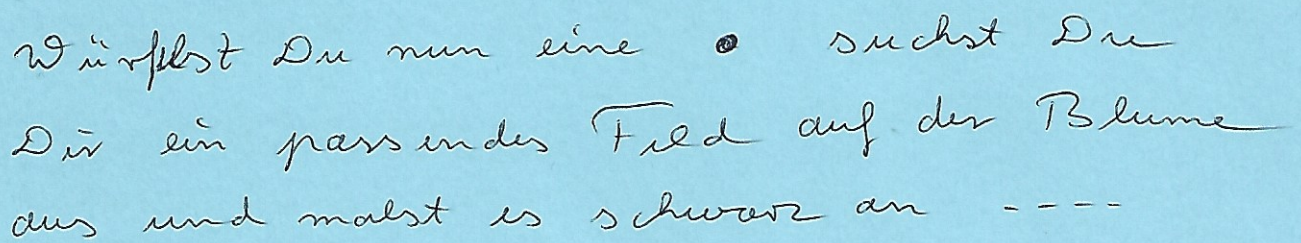 Würfelst Du nun eine • suchst Du
Dir ein passendes Feld auf der Blume
aus und malst es schwarz an ----